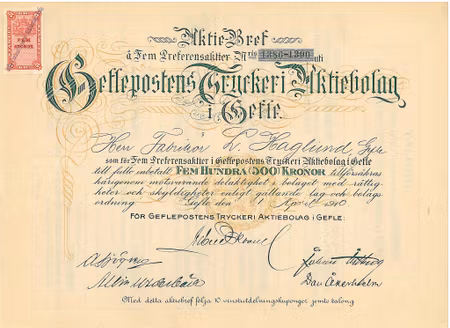 Aktie Bref
å Fem Preferensaktier Nris 1386-1390 uti
FEM
KRONOR
Geflepostens Tryckeri Aktiebolag
i Gefle.
Herr Fabrikör L. Haglund, Gefle
som för Fem Preferensaktier i Geflepostens Tryckeri Aktiebolag i Gefle
till fullo inbetalt FEM HUNDRA (500) KRONOR tillförsäkras
härigenom motsvarande delaktighet i bolaget med rättig-
heter och skyldigheter enligt gällande lag och bolags-
ordning. Gefle den 1 April 1910
FÖR GEFLEPOSTENS TRYCKERI AKTIEBOLAG I GEFLE:
Med detta aktiebref följa 10 vinstutdelningskuponger jemte talong